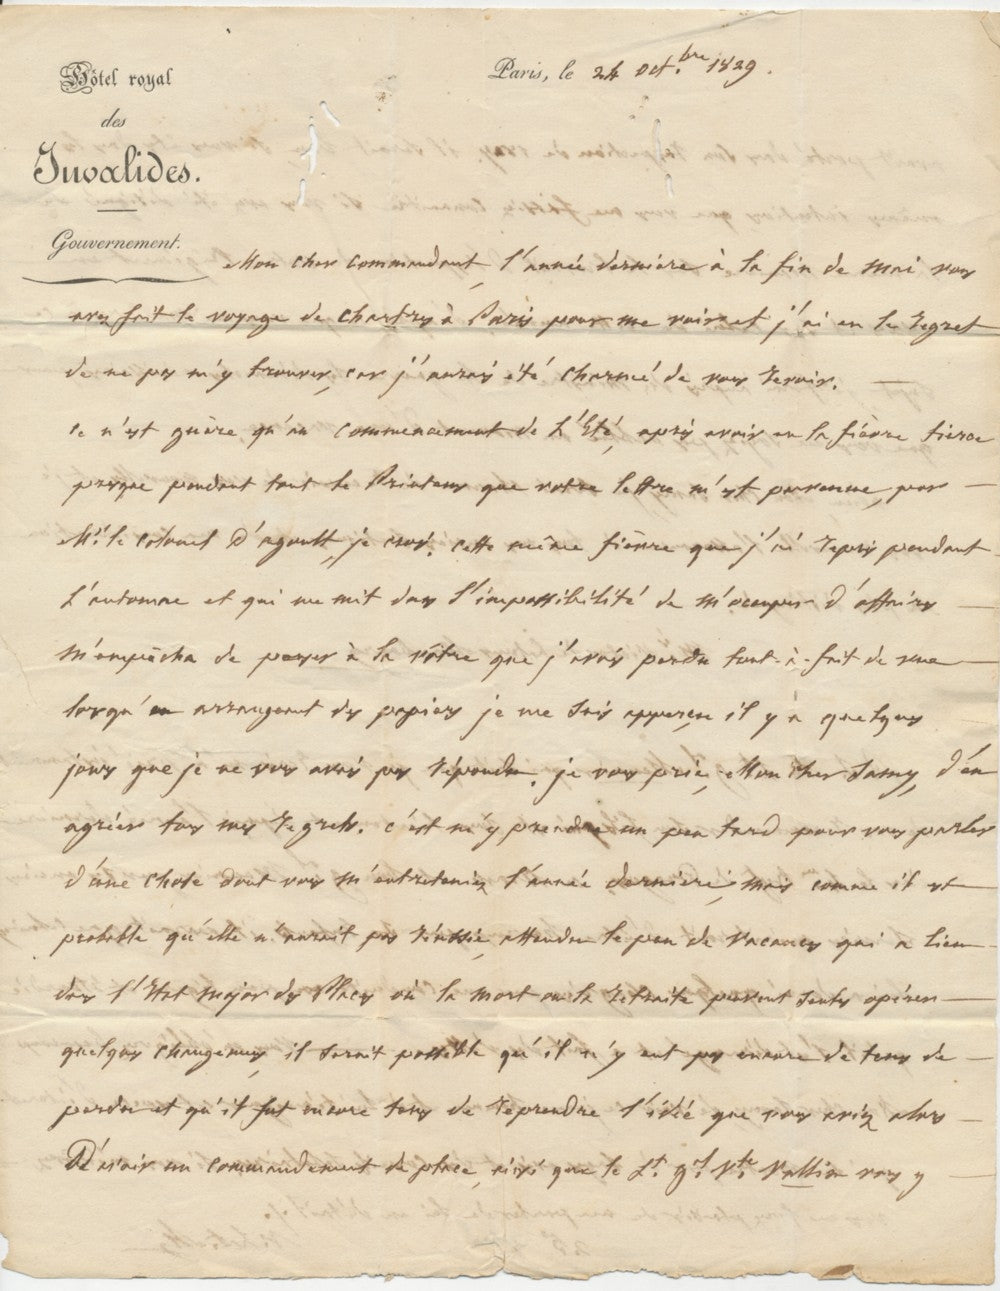 Hôtel royal
des
Invalides.
Gouvernement.
Paris, le 24 oct.bre 1829.
Mon cher commandant, l'année derniere à la fin de mai vous
avez fait le voyage de chartres à Paris pour me voir et j'ai eu le regret
de ne pas m'y trouver, car j'aurais été charmé de vous revoir. —
ce n'est guère qu'au commencement de L'Eté, après avoir eu la fièvre tierce
presque pendant tout le Printems que votre lettre m'est parvenue, par —
Mr. le colonel D'agoult, je crois. cette même fièvre que j'ai repris pendant
L'automne et qui me mit dans l'impossibilité de m'occuper d'affaires —
m'empêcha de penser à la vôtre que j'avais perdu tout-à-fait de vue —
lorsqu'en arrangeant des papiers je me suis apperçu il y a quelques
jours que je ne vous avais pas répondu. je vous prie, Mon cher, d'en
agréer tous mes regrets. c'est m'y prendre un peu tard pour vous parler
d'une chose dont vous m'entreteniez l'année derniere, mais comme il est —
probable qu'elle n'aurait pas réussie, attendu le peu de vacances qui a lieu —
dans l'Etat major des Places où la mort ou la retraite peuvent seuls opérer —
quelques changemens, il serait possible qu'il n'y eut pas encore de tems de —
perdu et qu'il fut encore tems de reprendre l'idée que vous aviez alors —
D'avoir un commandement de place, ainsi que le Lt. Gl. Vte. Vallin vous y